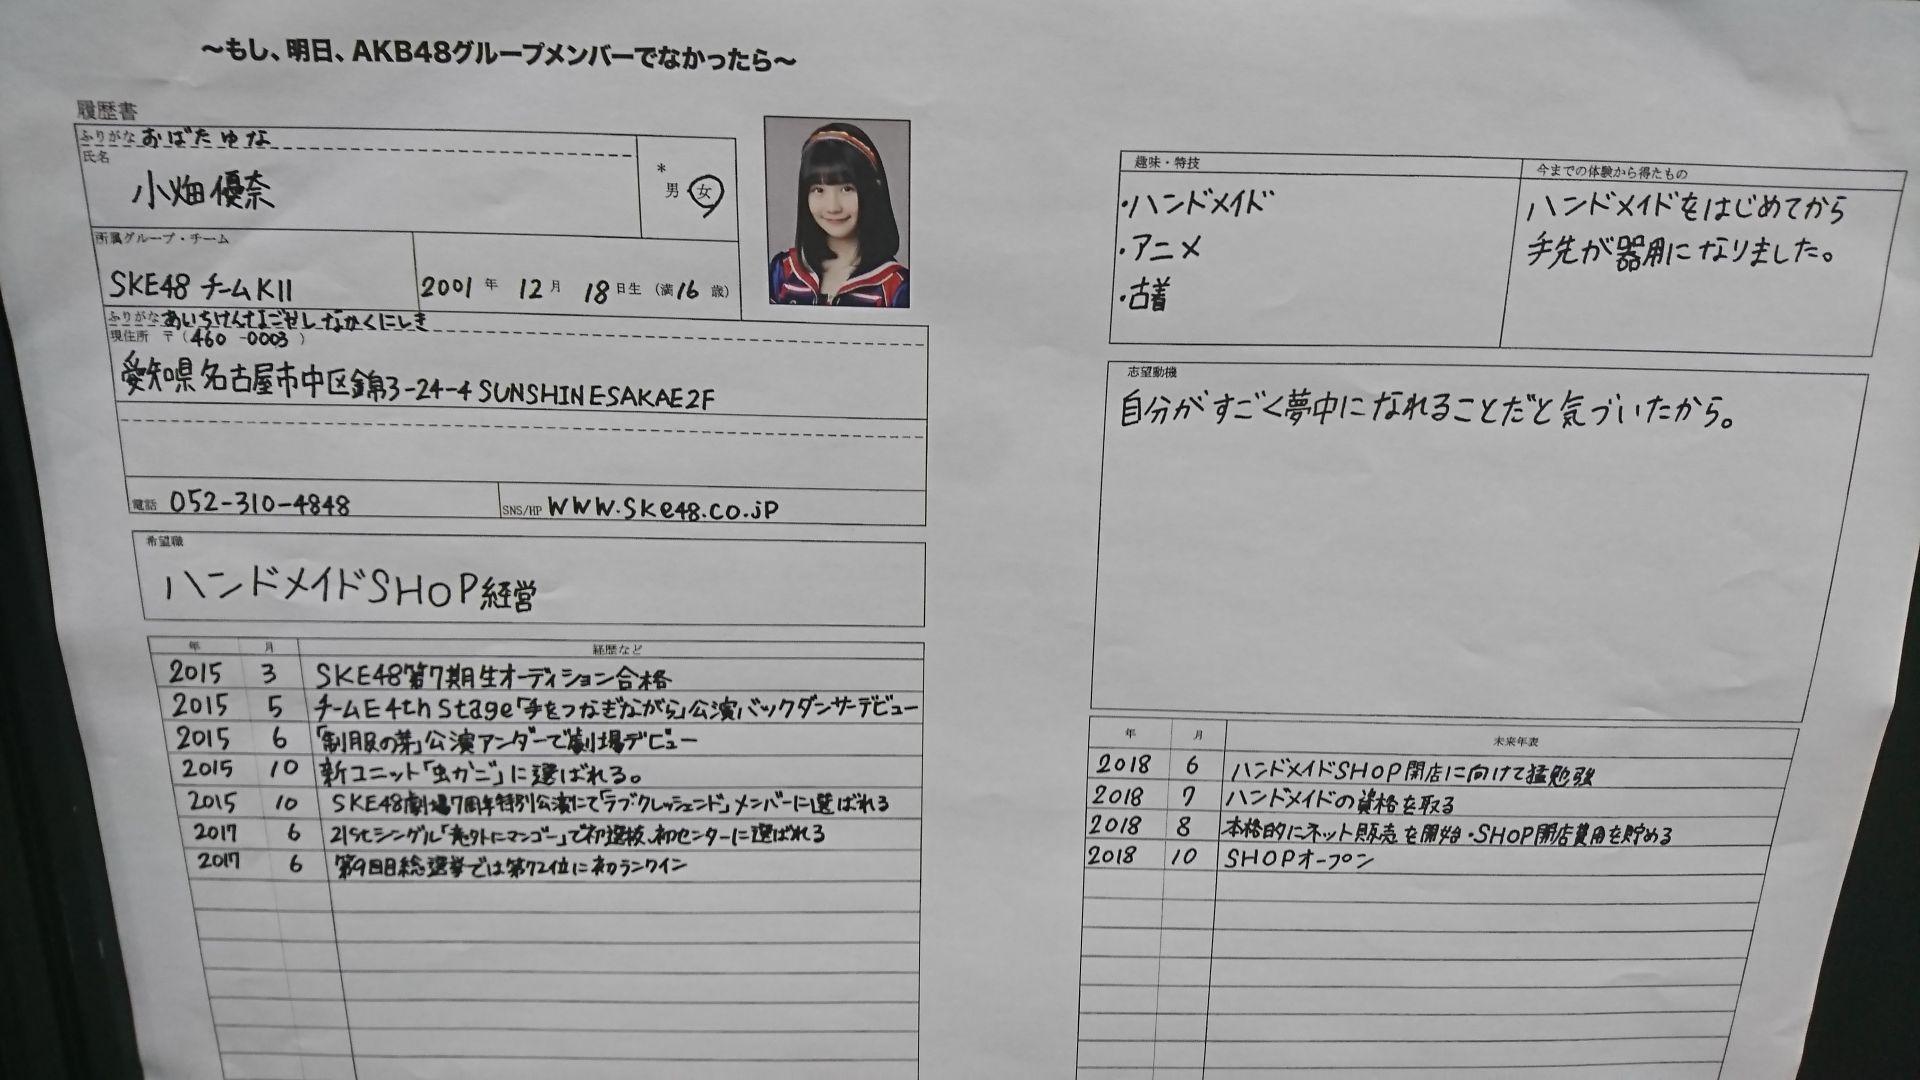 ～もし、明日、AKB48グループメンバーでなかったら～
履歴書
ふりがな おばた ゆな
氏名
小畑 優奈
*
男 女
所属グループ・チーム
SKE48 チームKII
2001年 12月 18日生 (満16歳)
ふりがな あいちけんなごせしなかくにしき
現住所 〒(460-0003)
愛知県名古屋市中区錦3-24-4 SUNSHINESAKAE2F
電話 052-310-4848
SNS/HP www.ske48.co.jp
希望職
ハンドメイドSHOP経営
年 月 経歴など
2015 3 SKE48第7期生オーディション合格
2015 5 チームE 4th Stage「手をつなぎながら」公演バックダンサーデビュー
2015 6 「制服の芽」公演アンダーで劇場デビュー
2015 10 新ユニット「虫かご」に選ばれる。
2015 10 SKE48劇場7周年特別公演にて「ラブ・クレッシェンド」メンバーに選ばれる
2017 6 21stシングル「意外にマンゴー」で初選抜、初センターに選ばれる
2017 6 第9回目総選挙では第72位に初ランクイン
趣味・特技
・ハンドメイド
・アニメ
・古着
今までの体験から得たもの
ハンドメイドをはじめてから
手先が器用になりました。
志望動機
自分がすごく夢中になれることだと気づいたから。
年 月 未来年表
2018 6 ハンドメイドSHOP開店に向けて猛勉強
2018 7 ハンドメイドの資格を取る
2018 8 本格的にネット販売を開始・SHOP開店費用を貯める
2018 10 SHOPオープン